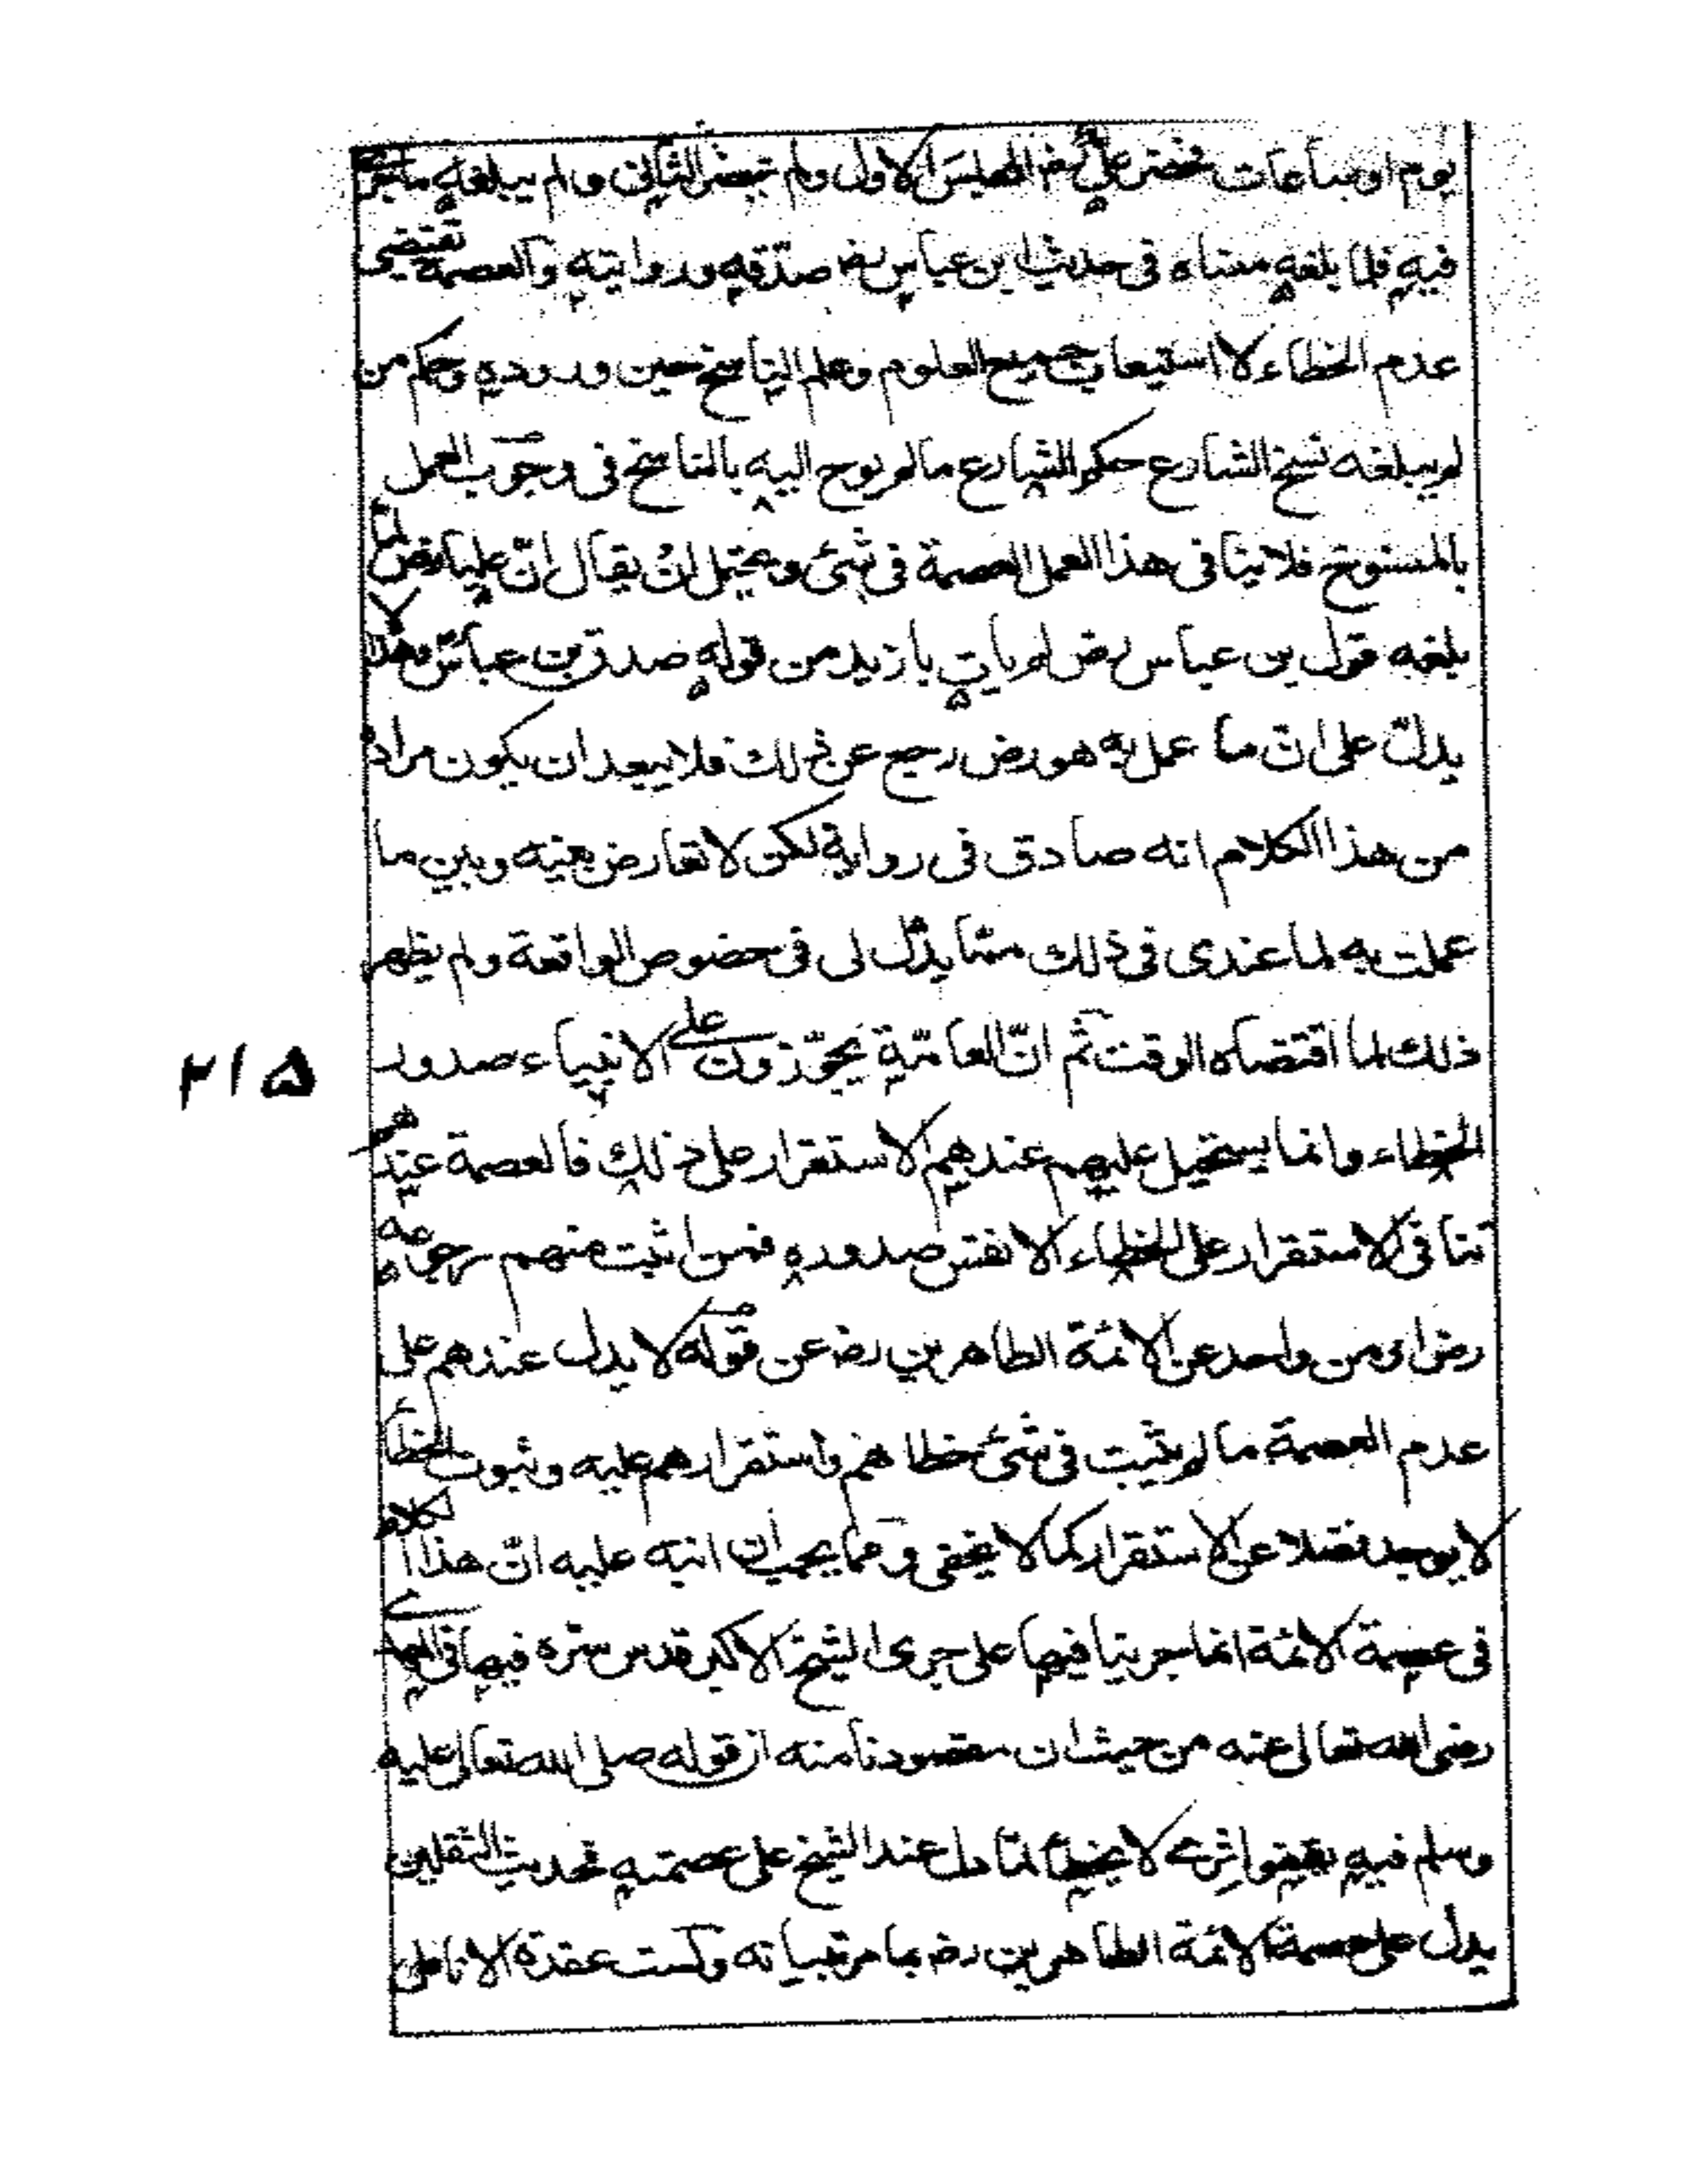 يوم او ساعات فحضر علي رض المجلس الاول ولم يحضر الثاني ولم يبلغه ما جرى
فيه فلما بلغه معناه في حديث ابن عباس رض صدّقه وروايته والعصمة تقتضي
عدم الخطاء لا استيعاب جميع العلوم وعلم الناسخ حين وروده وحكم من
لم يبلغه نسخ الشارع حكم الشارع ما لم يوح اليه بالناسخ في وجوب العمل
بالمنسوخ فلا ينافي هذا العمل العصمة في شئ ويحتمل ان يقال انّ عليا رض لمّا
بلغه قول بن عباس رض لم يات بازيد من قوله صدق بن عباس وهذا لا
يدلّ على انّ ما عمل به هو رض رجع عن ذلك فلا يبعد ان يكون مراده
من هذا الكلام انه صادق في رواية لكن لا تعارض بينه وبين ما
عملت به لما عندي في ذلك ممّا يدّل لى في خصوص الواقعة ولم يظهر
ذلك لما اقتضاه الوقت ثم انّ العامّة يجوّزون على الانبياء صدور
الخطاء وانما يستحيل عليهم عندهم الاستقرار على ذلك فالعصمة عندهم
تنافي الاستقرار على الخطاء لا نفس صدوره فمن اثبت منهم رجوعه
رض او من واحد عن الائمة الطاهرين رض عن قوله لا يدل عندهم على
عدم العصمة ما لم يثبت في شئ خطاهم واستقرارهم عليه وثبوت الخطأ
لا يوجد فضلا عن الاستقرار كما لا يخفى وعما يجب ان انبه عليه انّ هذا الكلام
في عصمة الائمة انما جرينا فيها على جرى الشيخ الاكبر قدس سره فيها في المهدى
رضي الله تعالى عنه من حيث ان مقصودنا منه ان قوله صلى الله تعالى عليه
وسلم فيه يقفو اثرى لا يخطأ لما دل عند الشيخ على عصمته فحديث الثقلين
يدل على عصمة الائمة الطاهرين رض بما مر تبيانه وكست عقدة الانامل
٢١٥